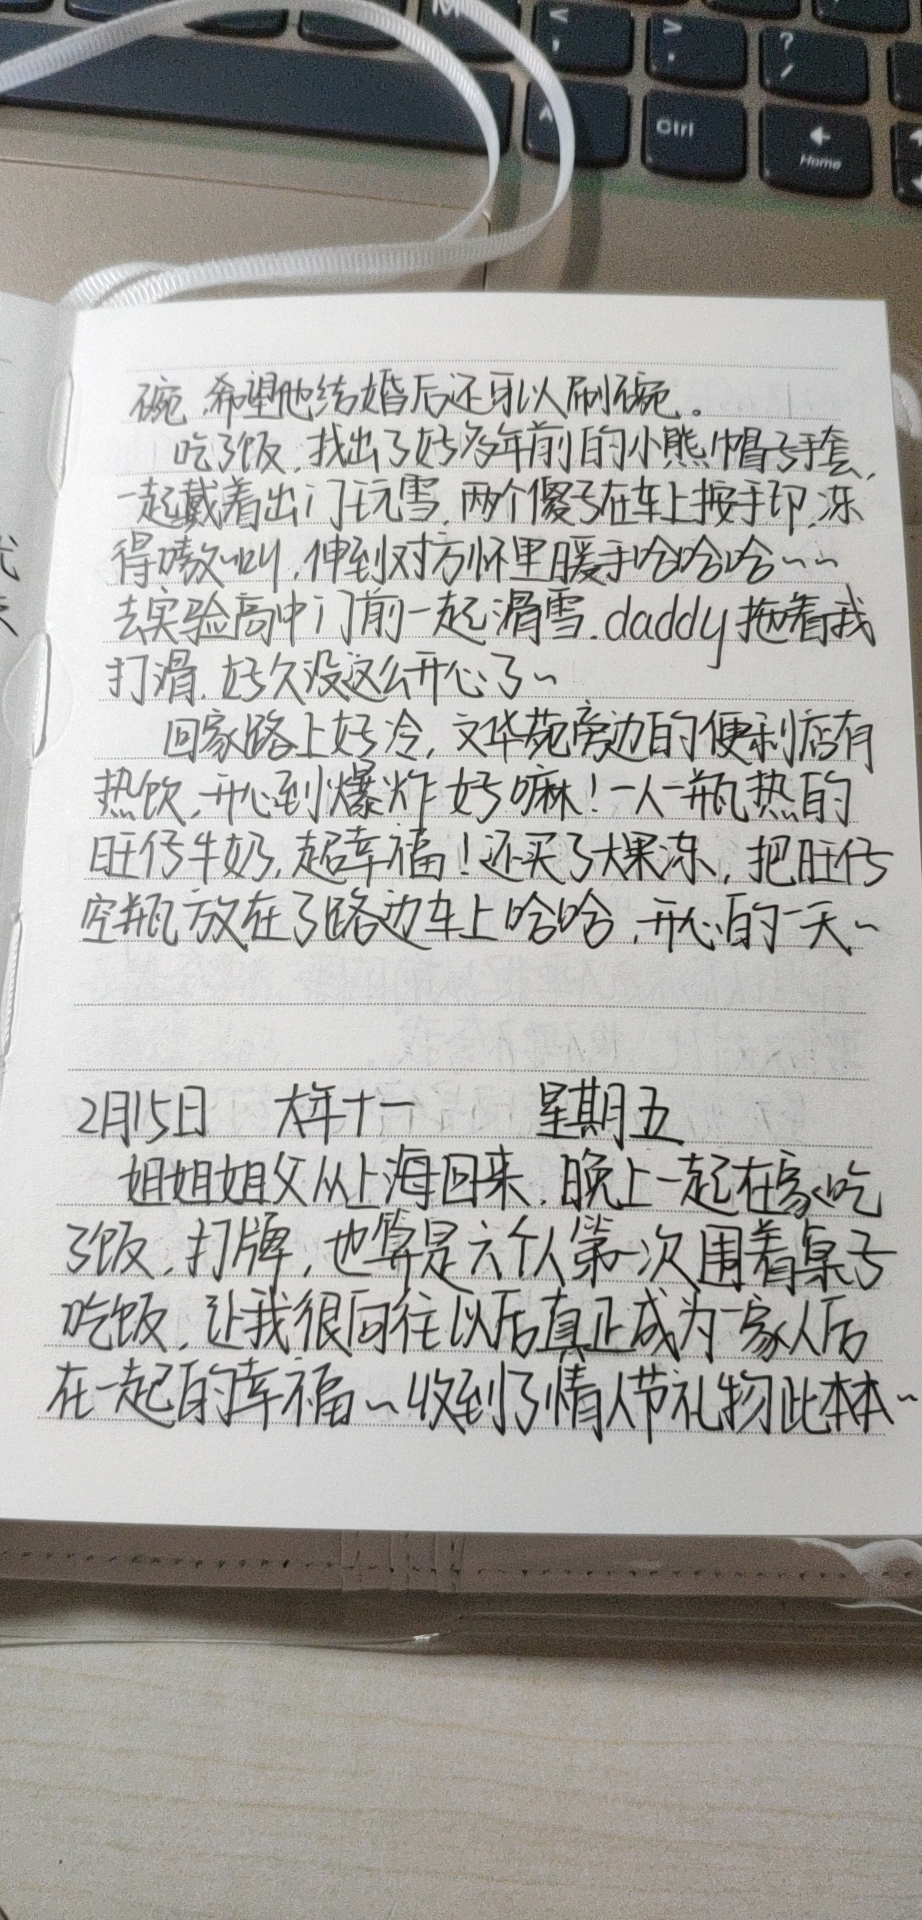 M
<
,
>
.
?
/
^
Ctrl
←
Home
碗,希望他结婚后还可以刷碗。
吃了饭,找出了好多年前的小熊帽子手套,
一起戴着出门玩雪,两个傻子在车上按手印,冻
得嗷叫,伸到对方怀里暖手哈哈哈~~
去实验高中门前一起滑雪.daddy拖着我
打滑,好久没这么开心了~
回家路上好冷,文华苑旁边的便利店有
热饮,开心到爆炸好嘛!一人一瓶热的
旺仔牛奶,超幸福!还买了大果冻,把旺仔
空瓶放在了路边车上哈哈,开心的一天~
2月15日 大年十一 星期五
姐姐姐父从上海回来,晚上一起在家吃
了饭,打牌,也算是六个人第一次围着桌子
吃饭,让我很向往以后真正成为一家人后
在一起的幸福~收到了情人节礼物此本本~